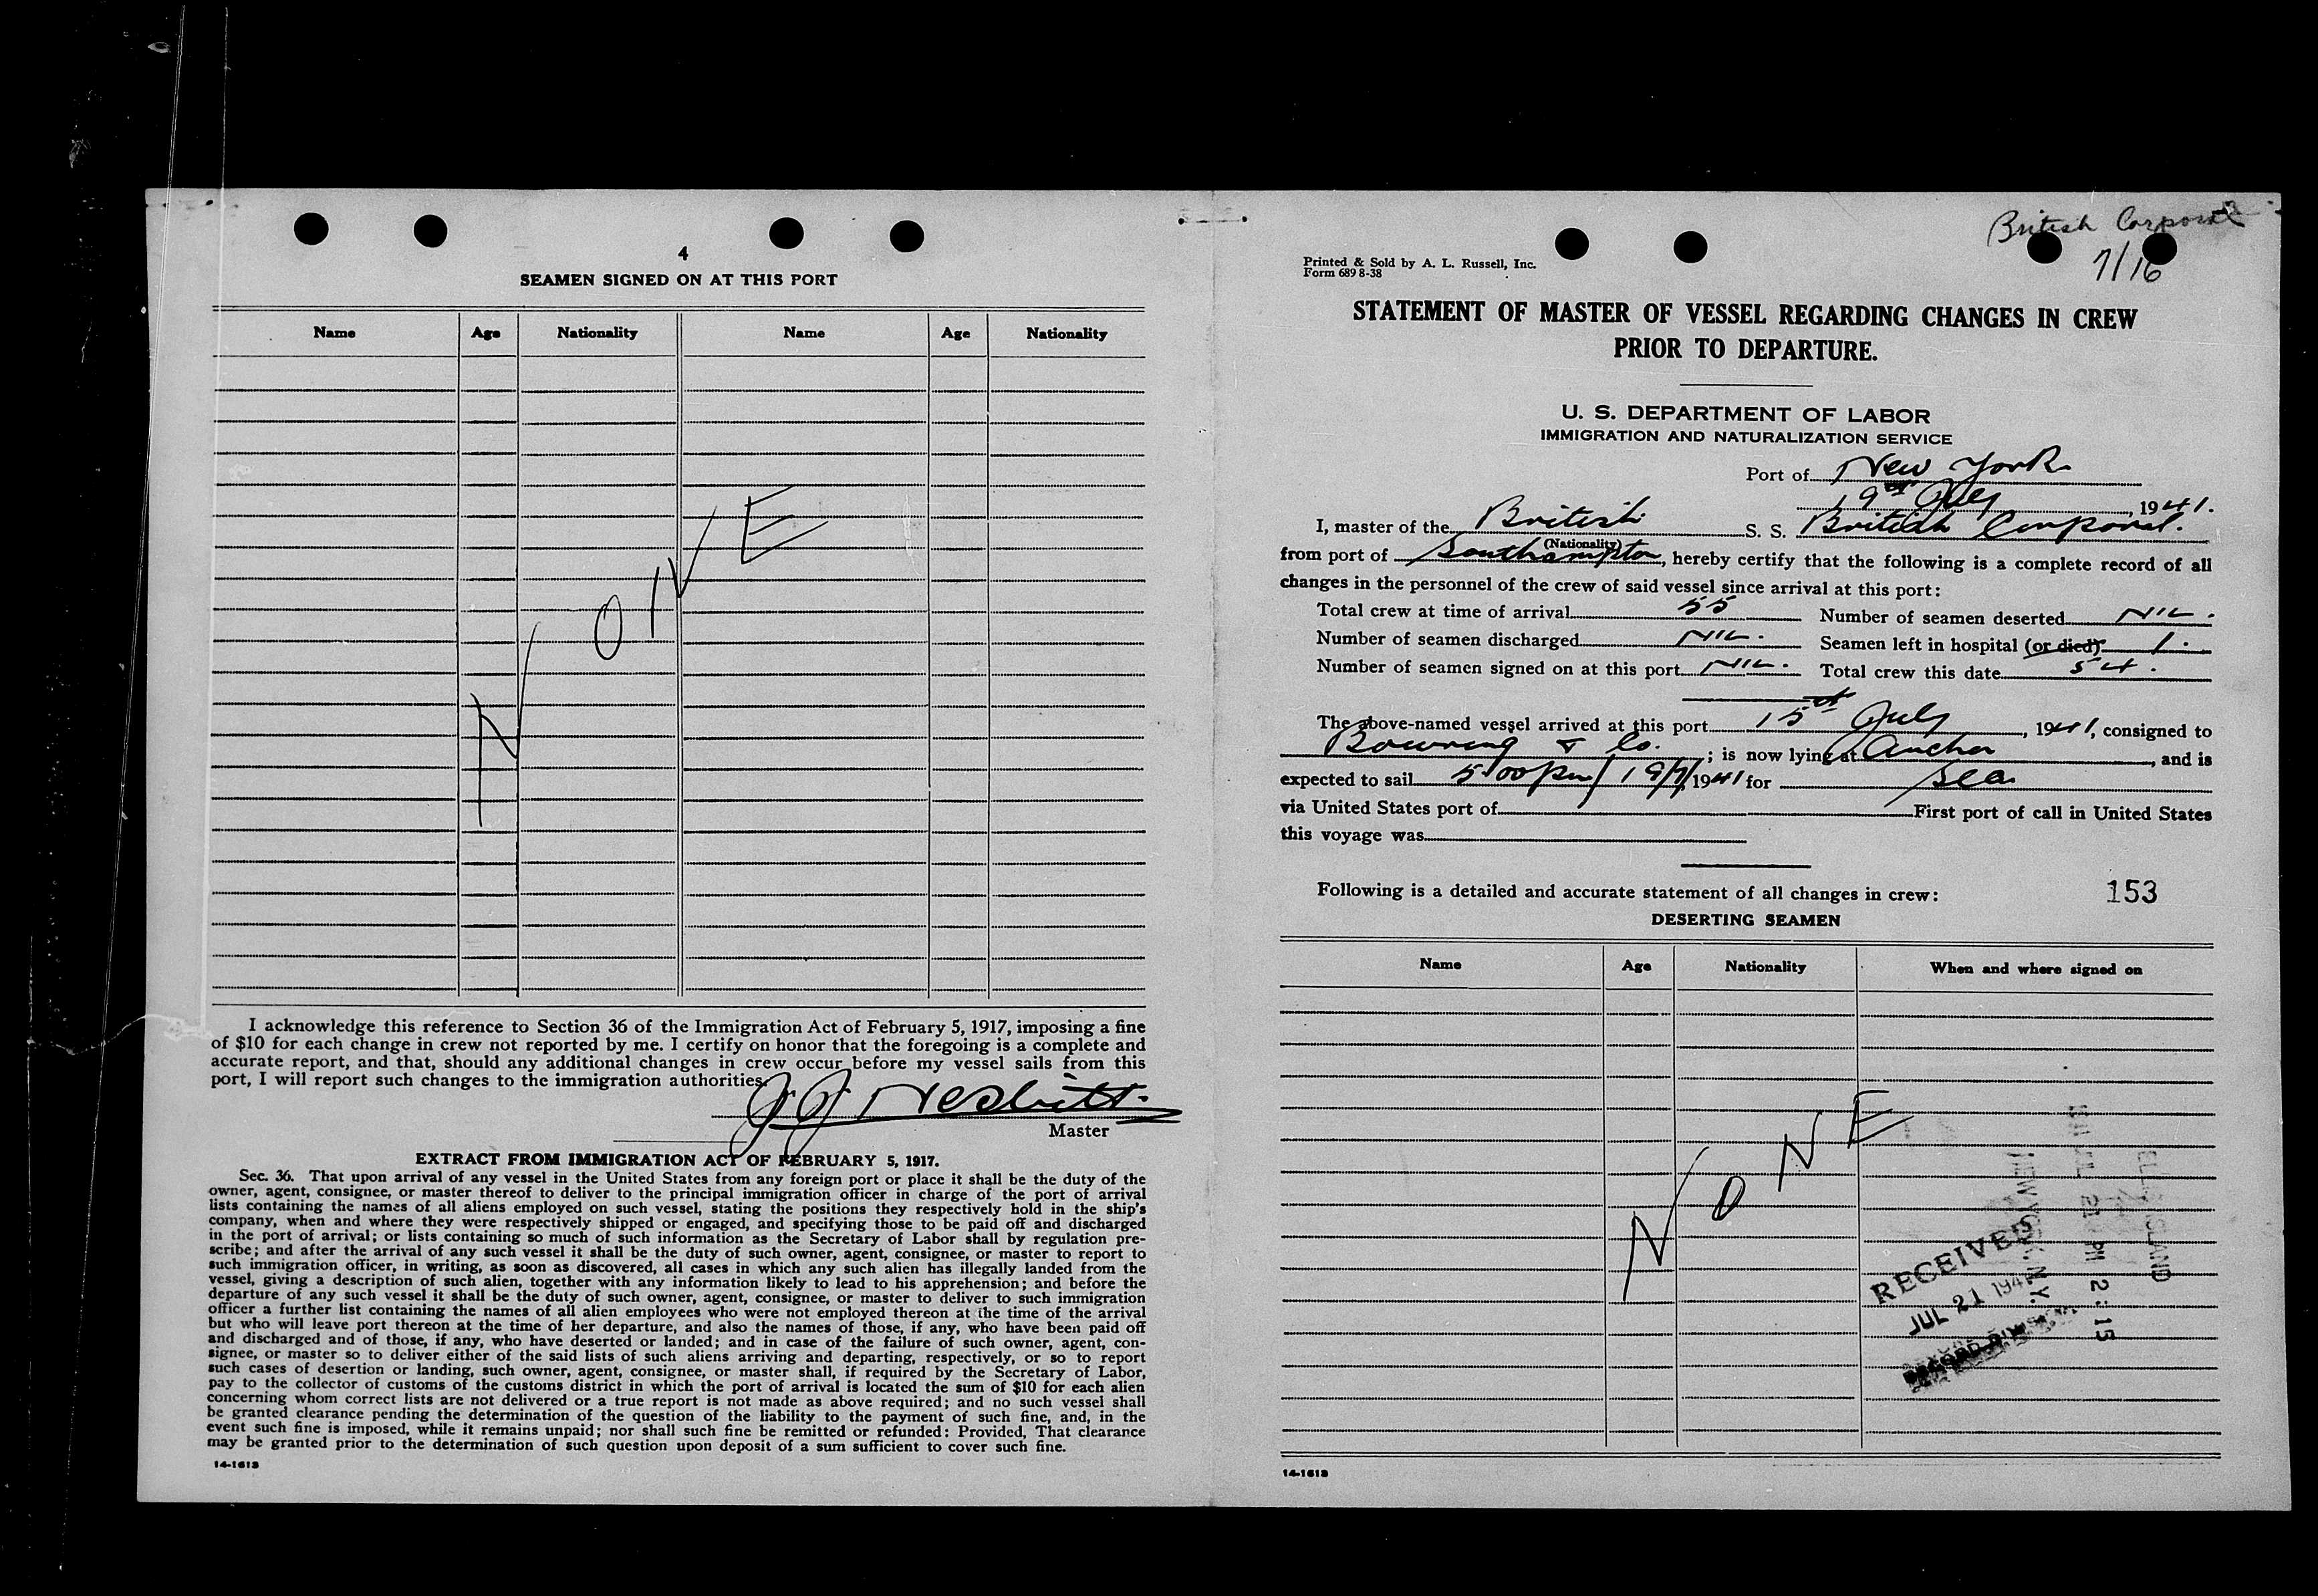 4
SEAMEN SIGNED ON AT THIS PORT
Name Age Nationality Name Age Nationality
NONE
I acknowledge this reference to Section 36 of the Immigration Act of February 5, 1917, imposing a fine
of $10 for each change in crew not reported by me. I certify on honor that the foregoing is a complete and
accurate report, and that, should any additional changes in crew occur before my vessel sails from this
port, I will report such changes to the immigration authorities.
J J Nesbitt.
Master
EXTRACT FROM IMMIGRATION ACT OF FEBRUARY 5, 1917.
Sec. 36. That upon arrival of any vessel in the United States from any foreign port or place it shall be the duty of the
owner, agent, consignee, or master thereof to deliver to the principal immigration officer in charge of the port of arrival
lists containing the names of all aliens employed on such vessel, stating the positions they respectively hold in the ship's
company, when and where they were respectively shipped or engaged, and specifying those to be paid off and discharged
in the port of arrival; or lists containing so much of such information as the Secretary of Labor shall by regulation pre-
scribe; and after the arrival of any such vessel it shall be the duty of such owner, agent, consignee, or master to report to
such immigration officer, in writing, as soon as discovered, all cases in which any such alien has illegally landed from the
vessel, giving a description of such alien, together with any information likely to lead to his apprehension; and before the
departure of any such vessel it shall be the duty of such owner, agent, consignee, or master to deliver to such immigration
officer a further list containing the names of all alien employees who were not employed thereon at the time of the arrival
but who will leave port thereon at the time of her departure, and also the names of those, if any, who have been paid off
and discharged and of those, if any, who have deserted or landed; and in case of the failure of such owner, agent, con-
signee, or master so to deliver either of the said lists of such aliens arriving and departing, respectively, or so to report
such cases of desertion or landing, such owner, agent, consignee, or master shall, if required by the Secretary of Labor,
pay to the collector of customs of the customs district in which the port of arrival is located the sum of $10 for each alien
concerning whom correct lists are not delivered or a true report is not made as above required; and no such vessel shall
be granted clearance pending the determination of the question of the liability to the payment of such fine, and, in the
event such fine is imposed, while it remains unpaid; nor shall such fine be remitted or refunded: Provided, That clearance
may be granted prior to the determination of such question upon deposit of a sum sufficient to cover such fine.
14-1613
British Corporal
7/16
Printed & Sold by A. L. Russell, Inc.
Form 689 8-38
STATEMENT OF MASTER OF VESSEL REGARDING CHANGES IN CREW
PRIOR TO DEPARTURE.
U. S. DEPARTMENT OF LABOR
IMMIGRATION AND NATURALIZATION SERVICE
Port of New York
19th July, 1941.
I, master of the British S. S. British Corporal.
(Nationality)
from port of Southampton, hereby certify that the following is a complete record of all
changes in the personnel of the crew of said vessel since arrival at this port:
Total crew at time of arrival 55 Number of seamen deserted NIL.
Number of seamen discharged NIL. Seamen left in hospital (or died) 1.
Number of seamen signed on at this port NIL. Total crew this date 54.
The above-named vessel arrived at this port 15th July, 1941, consigned to
Bowring & Co.; is now lying at Anchor, and is
expected to sail 5.00pm 19/7/1941 for Sea
via United States port of First port of call in United States
this voyage was
Following is a detailed and accurate statement of all changes in crew: 153
DESERTING SEAMEN
Name Age Nationality When and where signed on
NONE
ELLIS ISLAND
JUL 21 PM 2:15
NEW YORK, N.Y.
RECEIVED
JUL 21 194
14-1613